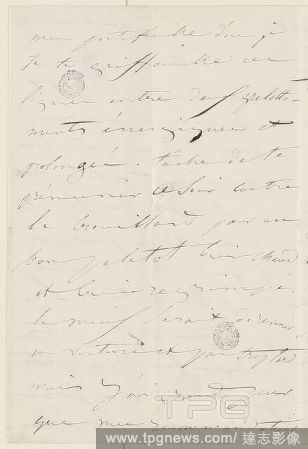 mon portefeuille d'où je
te griffonille ces
lignes entre deux grelotte-
ments énergiques et
prolongés. tâche de te
prémunir ce soir contre
le brouillard par un
bon paletot bien chaud
et bien
le mieux serait de venir
en voiture et pas trop tard
mais
que
TPG
www.tpgnews.com / 達志影像